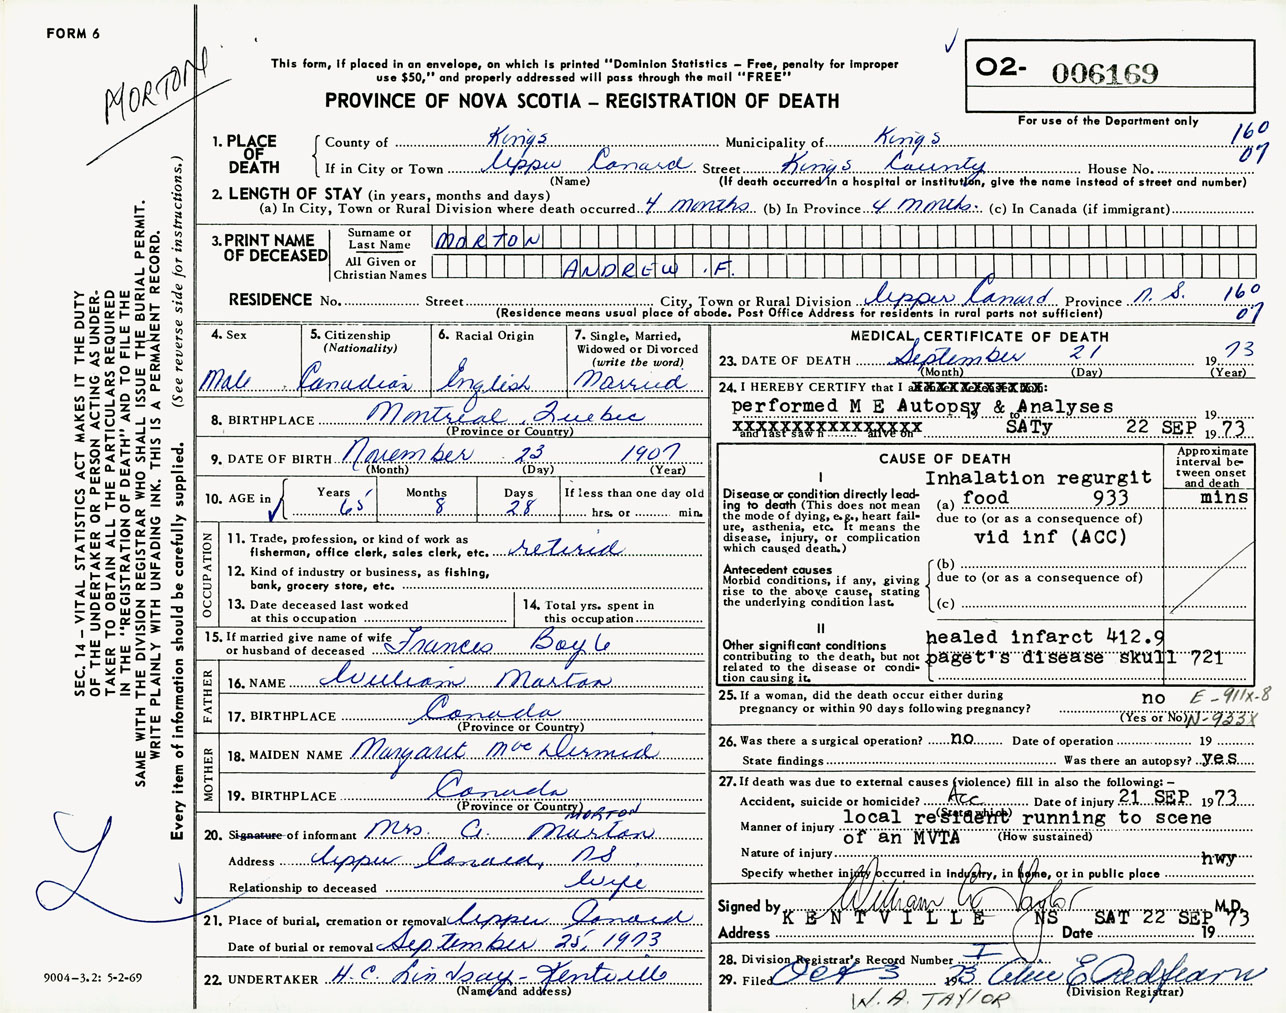 FORM 6
MORTON
This form, if placed in an envelope, on which is printed "Dominion Statistics – Free, penalty for improper
use $50," and properly addressed will pass through the mail "FREE"
PROVINCE OF NOVA SCOTIA – REGISTRATION OF DEATH
02- 006169
For use of the Department only
160
07
SEC. 14 – VITAL STATISTICS ACT MAKES IT THE DUTY
OF THE UNDERTAKER OR PERSON ACTING AS UNDER-
TAKER TO OBTAIN ALL THE PARTICULARS REQUIRED
IN THE "REGISTRATION OF DEATH" AND TO FILE THE
SAME WITH THE DIVISION REGISTRAR WHO SHALL ISSUE THE BURIAL PERMIT.
WRITE PLAINLY WITH UNFADING INK. THIS IS A PERMANENT RECORD.
Every item of information should be carefully supplied. (See reverse side for instructions.)
1. PLACE OF DEATH
County of Kings Municipality of Kings
If in City or Town Upper Canard Street Kings County House No.
(Name) (If death occurred in a hospital or institution, give the name instead of street and number)
2. LENGTH OF STAY (in years, months and days)
(a) In City, Town or Rural Division where death occurred 4 months (b) In Province 4 months. (c) In Canada (if immigrant)
3. PRINT NAME OF DECEASED
Surname or Last Name MORTON
All Given or Christian Names ANDREW .F.
RESIDENCE No. Street City, Town or Rural Division Upper Canard Province N. S. 160
(Residence means usual place of abode. Post Office Address for residents in rural parts not sufficient) 07
4. Sex
Male
5. Citizenship (Nationality)
Canadian
6. Racial Origin
English
7. Single, Married, Widowed or Divorced (write the word)
Married
8. BIRTHPLACE Montreal, Quebec
(Province or Country)
9. DATE OF BIRTH November 23 1907
(Month) (Day) (Year)
10. AGE in Years Months Days If less than one day old
65 8 28 hrs. or min.
OCCUPATION
11. Trade, profession, or kind of work as
fisherman, office clerk, sales clerk, etc. retired
12. Kind of industry or business, as fishing,
bank, grocery store, etc.
13. Date deceased last worked at this occupation
14. Total yrs. spent in this occupation
15. If married give name of wife
or husband of deceased Frances Boyle
FATHER
16. NAME William Morton
17. BIRTHPLACE Canada
(Province or Country)
MOTHER
18. MAIDEN NAME Margaret MacDermid
19. BIRTHPLACE Canada
(Province or Country)
MORTON
20. Signature of informant Mrs. A. Morton
Address Upper Canard, NS
Relationship to deceased Wife
21. Place of burial, cremation or removal Upper Canard
Date of burial or removal September 25, 1973
22. UNDERTAKER H.C. Lindsay - Kentville
(Name and address)
9004-3.2: 5-2-69
MEDICAL CERTIFICATE OF DEATH
23. DATE OF DEATH September 21 1973
(Month) (Day) (Year)
24. I HEREBY CERTIFY that I
performed M E Autopsy & Analyses to 19
and last saw h alive on SATy 22 SEP 1973
CAUSE OF DEATH
Approximate interval between onset and death
I
Disease or condition directly lead-
ing to death (This does not
mean the mode of dying, e.g., heart fail-
ure, asthenia, etc. It means the
disease, injury, or complication
which caused death.)
Inhalation regurgit
(a) food 933 mins
due to (or as a consequence of)
vid inf (ACC)
Antecedent causes
Morbid conditions, if any, giving
rise to the above cause, stating
the underlying condition last.
(b)
due to (or as a consequence of)
(c)
II
Other significant conditions
contributing to the death, but not
related to the disease or condi-
tion causing it.
healed infarct 412.9
paget's disease skull 721
25. If a woman, did the death occur either during
pregnancy or within 90 days following pregnancy? no
(Yes or No)
E-911x-8
N-933X
26. Was there a surgical operation? no Date of operation 19
State findings Was there an autopsy? yes
27. If death was due to external causes (violence) fill in also the following: –
Accident, suicide or homicide? Acc Date of injury 21 SEP 1973
(State which)
Manner of injury local resident running to scene
of an MVTA (How sustained)
Nature of injury hwy
Specify whether injury occurred in industry, in home, or in public place
Signed by William A Taylor M.D.
KENTVILLE NS SAT 22 SEP 73
Address Date 19
28. Division Registrar's Record Number I
29. Filed Oct 3 1973
(Division Registrar)
W. A. TAYLOR